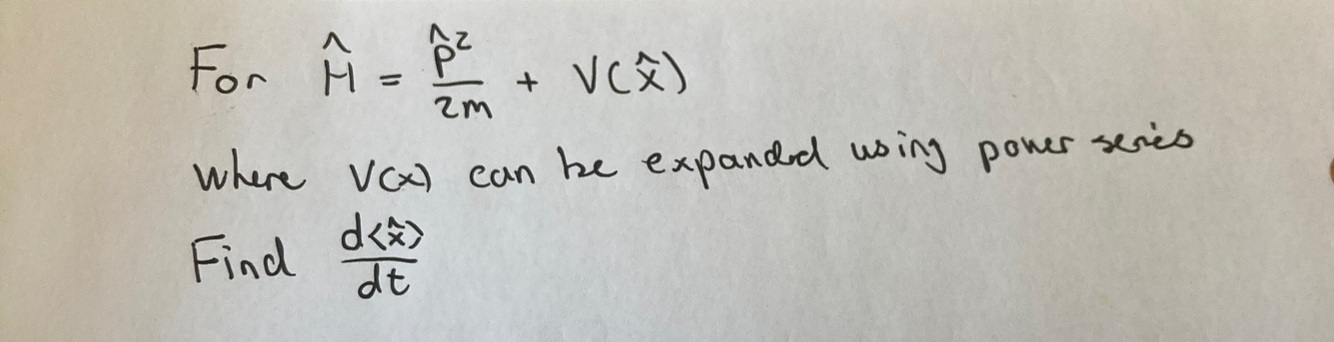 For Ĥ = p̂²/2m + V(x̂)
where V(x) can be expanded using power series
Find d<x̂>/dt